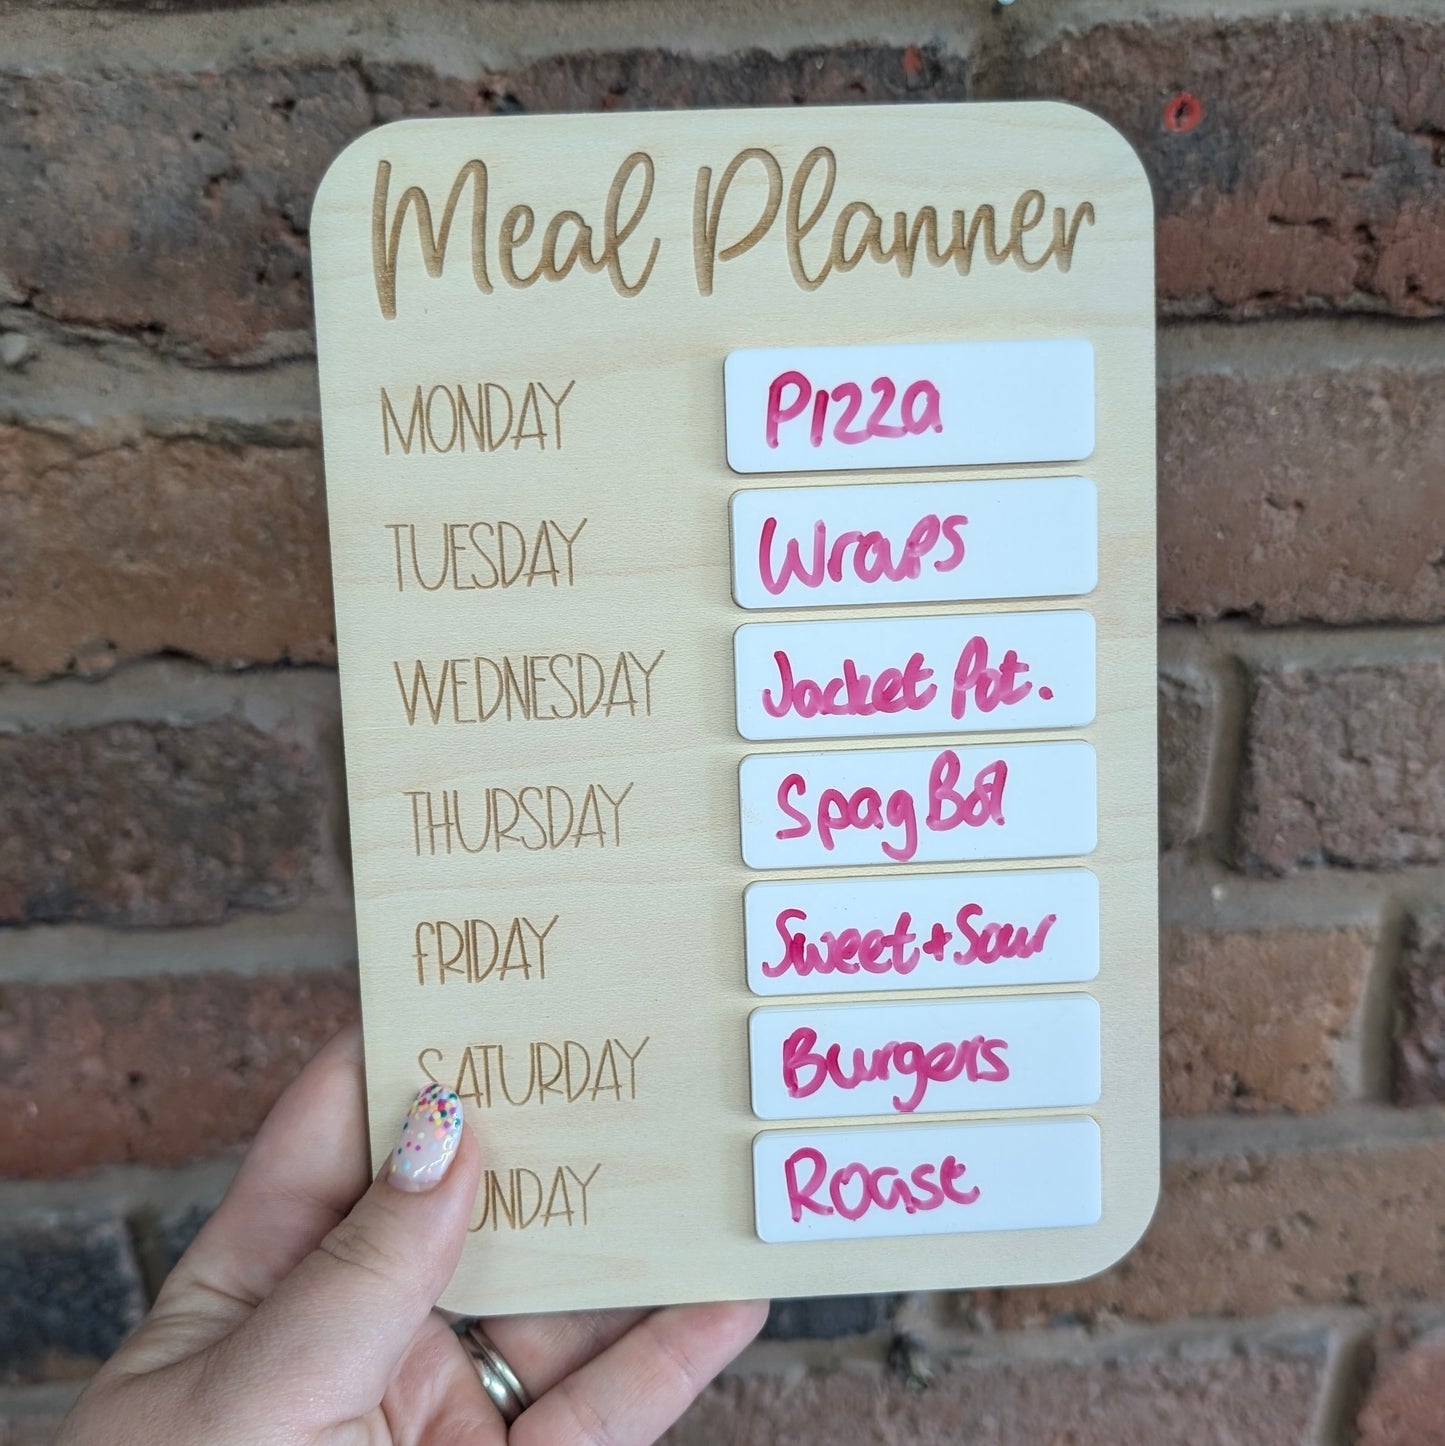 Meal Planner
MONDAY Pizza
TUESDAY Wraps
WEDNESDAY Jacket Pot.
THURSDAY Spag Bol
FRIDAY Sweet + Sour
SATURDAY Burgers
UNDAY Roast